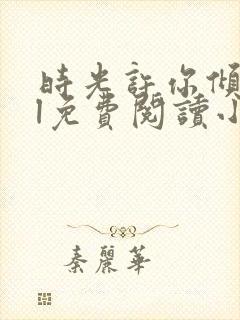 時光許你傾
l免費閱讀小
秦麗華